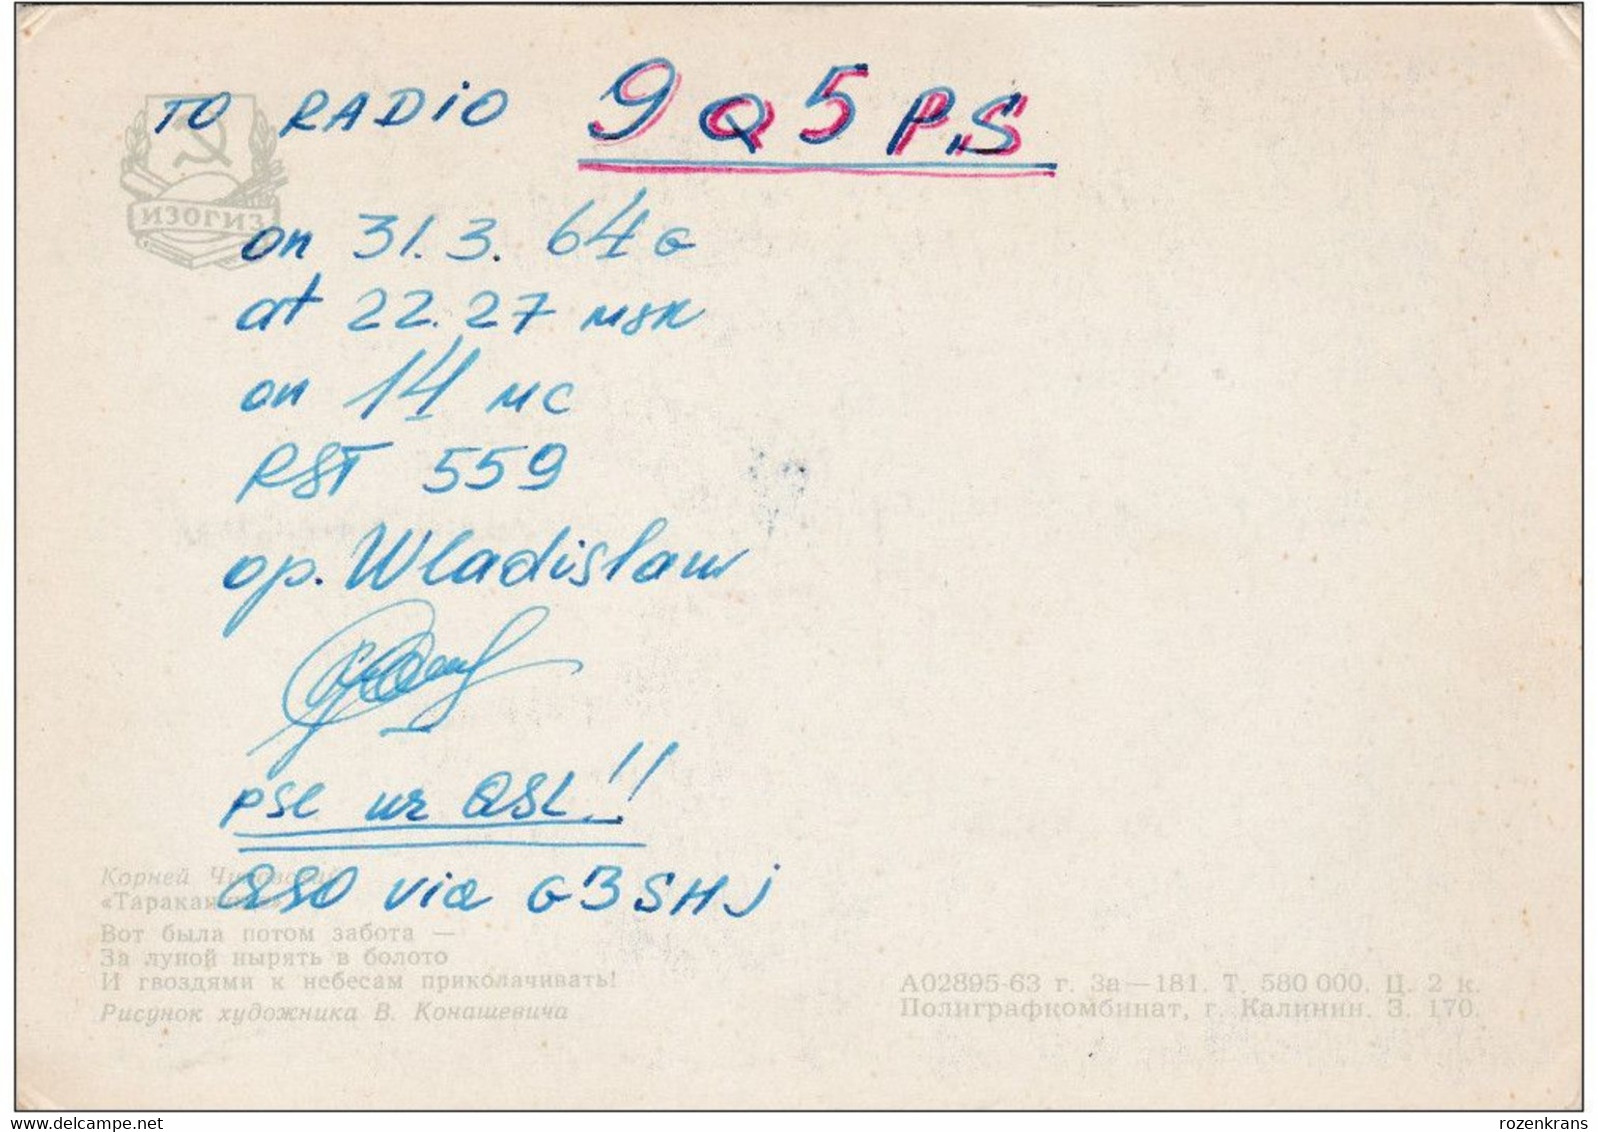 TO RADIO 9Q5PS
ИЗОГИЗ
on 31.3.64 G
at 22.27 msk
on 14 mc
RST 559
op. Wladislaw
pse ur QSL!!
Корней Чуковский
QSO via G3SHJ
«Тараканище»
Вот была потом забота —
За луной нырять в болото
И гвоздями к небесам приколачивать!
Рисунок художника В. Конашевича
А02895-63 г. За—181. Т. 580 000. Ц. 2 к.
Полиграфкомбинат, г. Калинин. З. 170.
rozenkrans